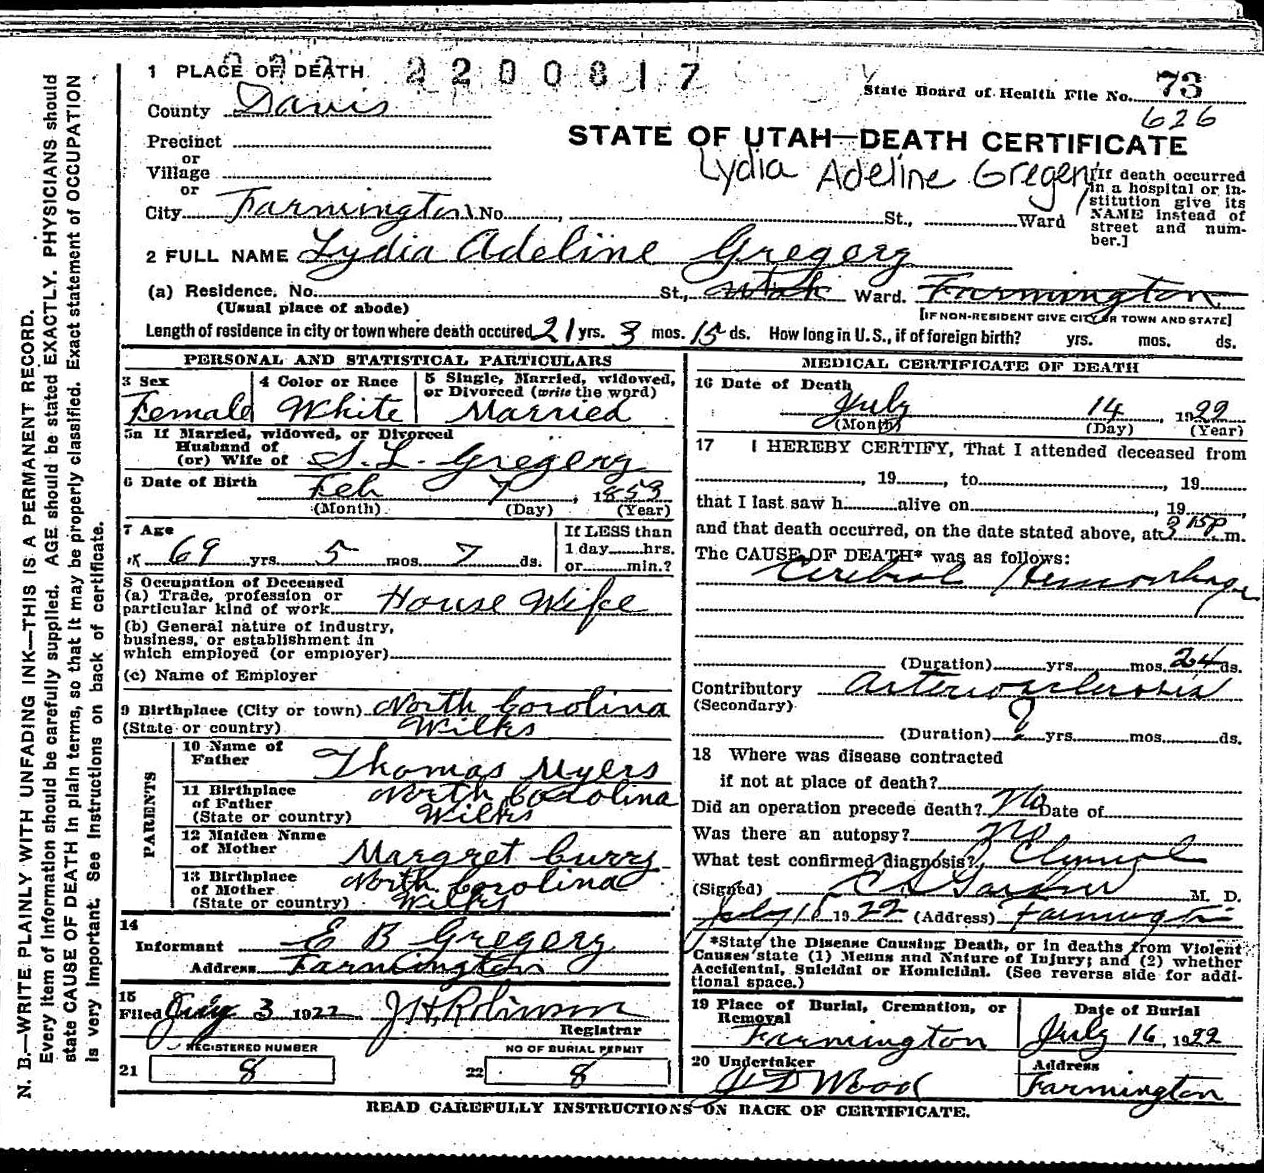 1 PLACE OF DEATH 2200817
State Board of Health File No. 73
County Davis
626
Precinct
or
STATE OF UTAH—DEATH CERTIFICATE
Village
Lydia Adeline Gregery
or
[If death occurred in a hospital or institution give its NAME instead of street and number.]
City Farmington No. , St., Ward
2 FULL NAME Lydia Adeline Gregery
(a) Residence. No. St., Utah Ward. Farmington
(Usual place of abode) [IF NON-RESIDENT GIVE CITY OR TOWN AND STATE]
Length of residence in city or town where death occured 21 yrs. 3 mos. 15 ds. How long in U.S., if of foreign birth? yrs. mos. ds.
PERSONAL AND STATISTICAL PARTICULARS
3 Sex
Female
4 Color or Race
White
5 Single, Married, widowed,
or Divorced (write the word)
Married
5a If Married, widowed, or Divorced
Husband of
(or) Wife of S. L. Gregery
6 Date of Birth Feb 7, 1853
(Month) (Day) (Year)
7 Age
69 yrs. 5 mos. 7 ds.
If LESS than
1 day hrs.
or min.?
8 Occupation of Deceased
(a) Trade, profession or
particular kind of work House Wife
(b) General nature of industry,
business, or establishment in
which employed (or employer)
(c) Name of Employer
9 Birthplace (City or town) North Corolina
(State or country) Wilks
PARENTS
10 Name of
Father Thomas Myers
11 Birthplace
of Father North Corolina
(State or country) Wilks
12 Maiden Name
of Mother Margret Curry
13 Birthplace
of Mother North Corolina
(State or country) Wilks
14
Informant E B Gregery
Address Farmington
15
Filed 3 1922 J H Robinson
Registrar
REGISTERED NUMBER
21 8
NO OF BURIAL PERMIT
22 8
MEDICAL CERTIFICATE OF DEATH
16 Date of Death
July 14, 1922
(Month) (Day) (Year)
17 I HEREBY CERTIFY, That I attended deceased from
, 19 , to , 19
that I last saw h alive on , 19 ,
and that death occurred, on the date stated above, at 3 15P m.
The CAUSE OF DEATH* was as follows:
Cerebral Hemorrhage
(Duration) yrs. mos. 24 ds.
Contributory Arteriosclerosis
(Secondary)
(Duration) yrs. mos. ds.
18 Where was disease contracted
if not at place of death?
Did an operation precede death? No Date of
Was there an autopsy? No
What test confirmed diagnosis? Clynical
(Signed) M. D.
July 15 1922 (Address) Farmington
*State the Disease Causing Death, or in deaths from Violent
Causes state (1) Means and Nature of Injury; and (2) whether
Accidental, Suicidal or Homicidal. (See reverse side for addi-
tional space.)
19 Place of Burial, Cremation, or
Removal
Farmington
Date of Burial
July 16, 1922
20 Undertaker
Wood
Address
Farmington
READ CAREFULLY INSTRUCTIONS ON BACK OF CERTIFICATE.
N. B.—WRITE PLAINLY WITH UNFADING INK—THIS IS A PERMANENT RECORD.
Every item of information should be carefully supplied. AGE should be stated EXACTLY. PHYSICIANS should
state CAUSE OF DEATH in plain terms, so that it may be properly classified. Exact statement of OCCUPATION
is very important. See Instructions on back of certificate.